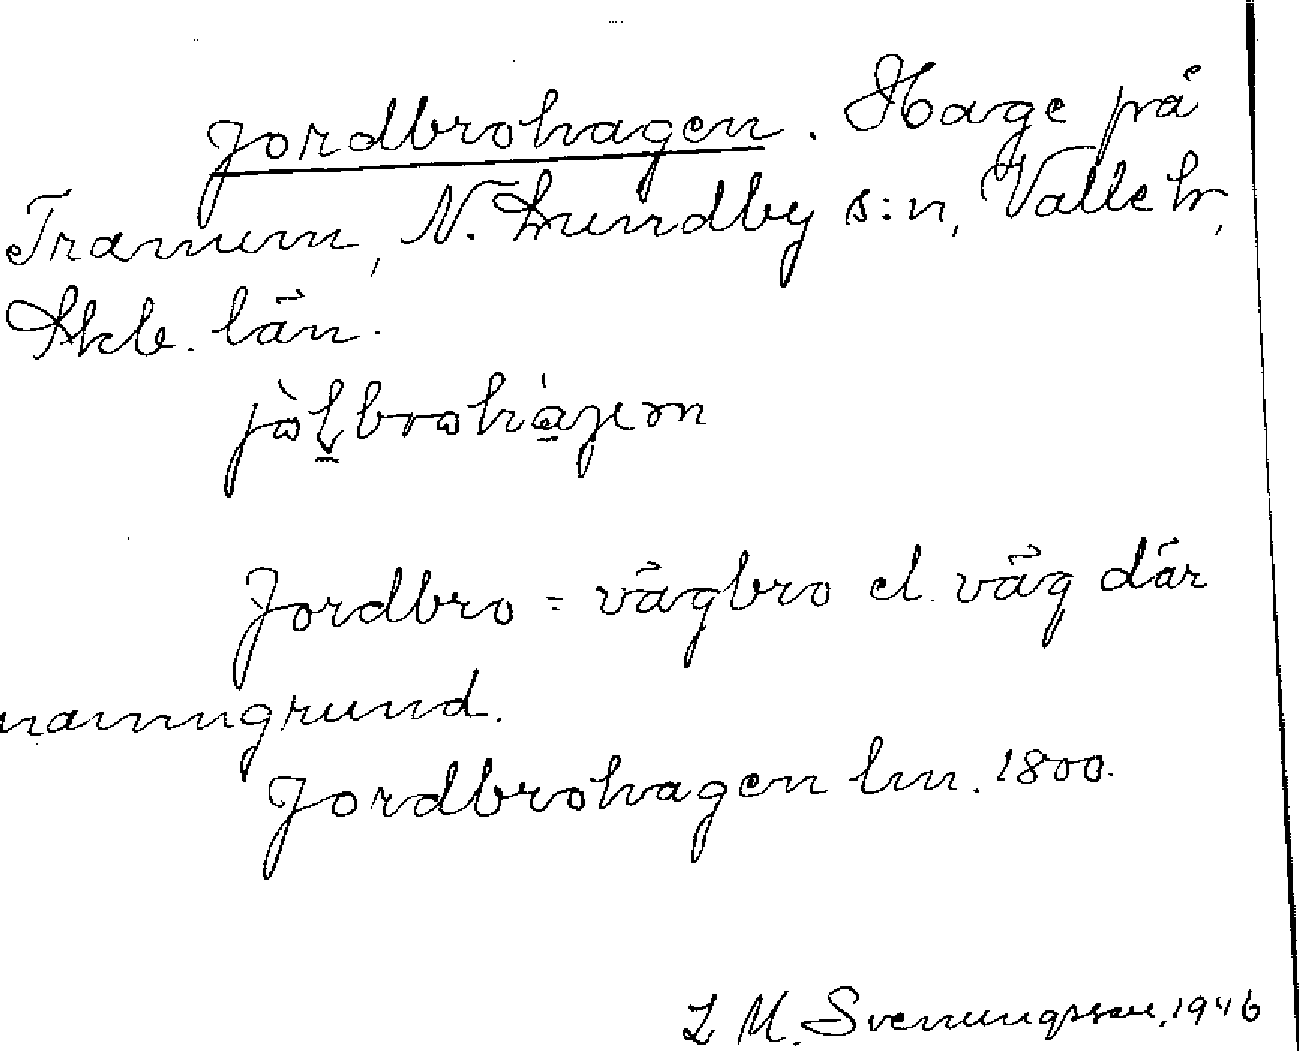 Jordbrohagen. Hage på
Tranum, N. Lundby s:n, Valle hr,
Skb. län.
Jordbro = vägbro el. väg där
namngrund.
Jordbrohagen lm. 1800.
L M. Svenungsson, 1946